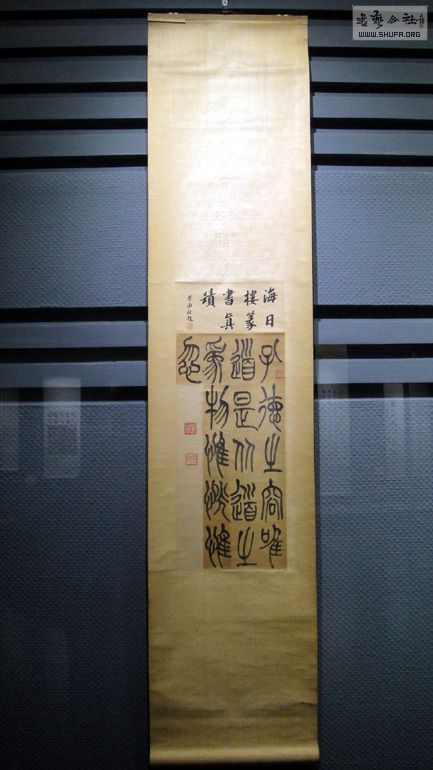 書藝公社
WWW.SHUFA.ORG
海日
樓篆
書眞
蹟
孔德之容唯
道是从道之
爲物惟恍惟
忽